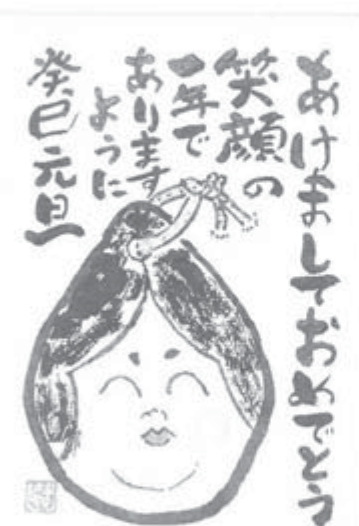 あけましておめでとう
笑顔の
一年で
あります
ように
癸巳元旦